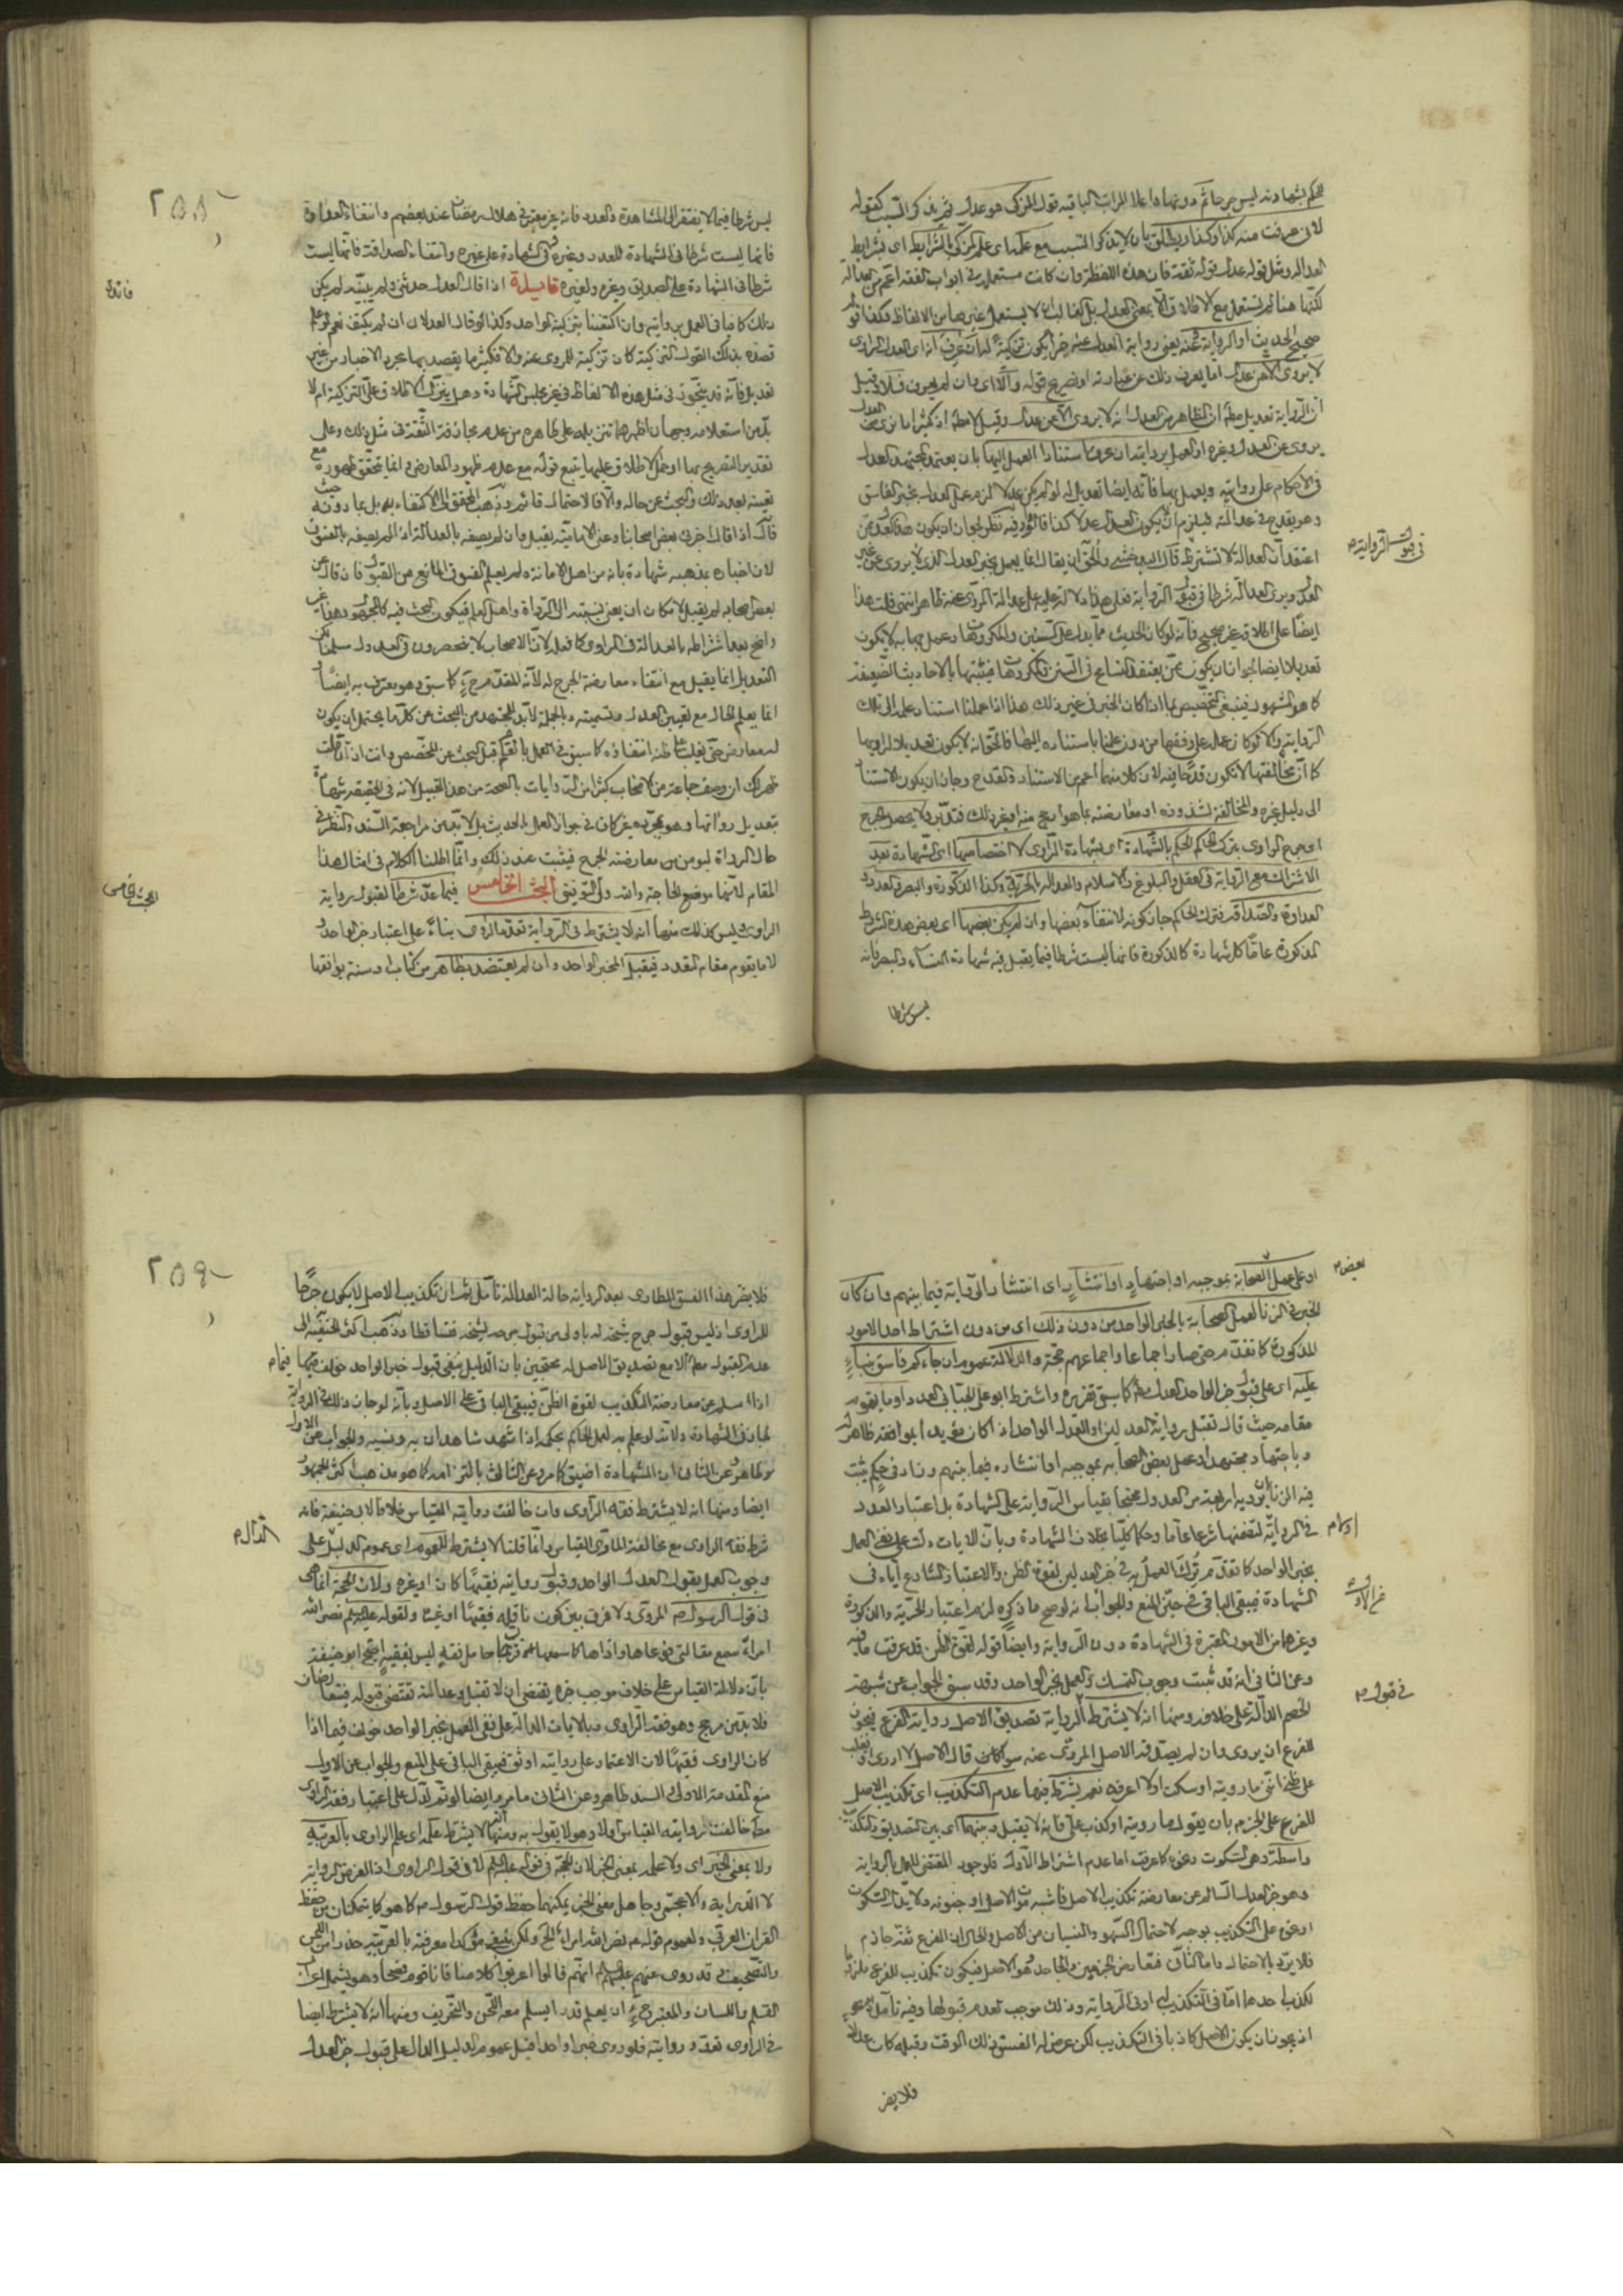 الحكم بشهادته ليس بجرحا ثم دونها واعلا المراتب الباقيه قول المزكى هو عدل ثم يذكر السبب كقوله
لانى عرفت منه كذا وكذا او يطلق بان لا يذكر السبب مع علمه اى علم المزكى بالشرايط اى بشرايط
العداله ومثل قوله عدل قوله ثقة فان هذه اللفظة وان كانت مستعملة فى ابواب الفقه اعم من العدالة
لكنها هنا لم تستعمل مع الاطلاق الا بمعنى العدل بل الغالب ان لا يستعمل غيرها من الالفاظ وكذا قوله
صحيح الحديث او الرواية عنه يعنى رواية العدل عنه خبرا يكون تزكية له ان عرف انه اى العدل الراوى
لا يروى الا عن عدل اما بعرف ذلك من عبارته او تصريح قوله والا اى وان لم يعرف فلا وقيل
ان الرواية تعديل مطلقا ان الظاهر من العدل انه لا يروى الا عن عدل وقيل لا مطلقا اذ كثيرا ما نرى من العدل
يروى عن العدل وغيره او العمل بروايته ان عرف استناد العمل اليها بان يعتمد المجتهد العدل
فى الاحكام على روايته ويعمل بها فانه ايضا تعديل له لو لم يكن عدلا لزم عمل العدل بخبر الفاسق
وهو يقدح فى عدالته فيلزم ان يكون العدل غير عدل كذا قالوا وفيه نظر لجواز ان يكون هذا العدل ممن
اعتقد ان العدالة لا تشترط قال البدخشى والحق ان يقال انما يعمل بخبر العدل الذى لا يروى عن غير
العدل ويرى العدالة شرطا فى قبول الرواية فعلى هذا دلالته عليه على عدالة المروى عنه ظاهر انتهى قلت هذا
ايضا على اطلاقه غير صحيح فانه لو كان الحديث مما يدل على السنن والمكروهات وعمل بها به لا يكون
تعديلا ايضا لجواز ان يكون ممن يعتقد التسامح فى السنن والمكروهات فيثبتها بالاحاديث الضعيفة
كما هو المشهور فينبغى التخصيص بما اذا كان الخبر فى غير ذلك هذا اذا علمنا استناد عمله الى تلك
الرواية والا لو كان عمل على وفقها من دون علمنا باستناده اليها فالحق انه لا يكون تعديلا لراويها
كما ان مخالفتها لا تكون قدحا فيه لان كلا منهما اعم من الاستناد والقدح وجاز ان يكون بالاستناد
الى دليل غيره والمخالفة لشذوذه او معارضته بما هو ارجح منه او غير ذلك فتدبر ولا يحصل الجرح
اى جرح الراوى بترك الحاكم الحكم بالشهادة اى بشهادة الراوى لاختصاصها اى الشهادة بعد
الاشتراك مع الرواية فى العقل والبلوغ والاسلام والعدالة بالحرية وكذا الذكورة والبصر والعدد
العداوة والصداقة فترك الحاكم جاز كونه لانتفاء بعضها وان لم يكن بعضها اى بعض هذه الشرايط
المذكورة عاما لكل شهادة كالذكورة فانها ليست شرطا فيما يقبل فيه شهادة النساء والبصر فانه
ليس شرطا
فى قبول الرواية م
٢٥٨
ليس شرطا فيما لا يفتقر الى المشاهدة والعدد فانه غير معتبر فى هلال رمضان عند بعضهم وانتفاء العداوة
فانها ليست شرطا فى الشهادة للعدو وغيره وفى الشهادة على غيره وانتفاء الصداقة فانها ليست
شرطا فى الشهادة على الصديق وغيره ولغيره فايدة اذا قال العدل حدثنى ولم يبينه لم يكن
ذلك كافيا فى العمل بروايته وان اكتفينا بتزكية الواحد وكذا لو قال العدلان ان لم يكتف نعم لو علم
قصده بذلك القول التزكية كان تزكية للمروى عنه والا فكثيرا ما يقصد بها مجرد الاخبار من غير
تعديل فانه قد يتجوز فى مثل هذه الالفاظ فى غير مجلس الشهادة وهل ينزل الاطلاق على التزكية ام لا
بد من استعلامه وجهان اظهرهما تنزيله على ظاهره من عدم مجازفة الثقة فى مثل ذلك وعلى
تقدير التصريح بها او حمل الاطلاق عليها يتبع قوله مع عدم ظهور المعارض وانما يتحقق ظهوره مع
تعينه بعد ذلك والبحث عن حاله والا فالاحتمال قائم وذهب المحقق الى الاكتفاء به بل بما دونه حيث
قال اذا قال اخبرنى بعض اصحابنا وعنى الامامية يقبل وان لم يصفه بالعدالة اذا لم يصفه بالفسق
لان اخباره بمذهبه شهادة بانه من اهل الامانة ولم يعلم الفسق المانع من القبول فان قال عن
بعض اصحابه لم يقبل لامكان ان يعنى نسبته الى الرواة واهل العلم فيكون البحث فيه كالمجهول وهذا غير
واضح بعد اشتراطه بالعدالة فى الراوى كما فعله لان الاصحاب لا ينحصرون فى العدول سلمنا لكن
التعديل انما يقبل مع انتفاء معارضة الجرح له لانه المقدم ح كما سبق وهو معترف به ايضا
انما يعلم الحال مع تعيين العدل وتسميته وبالجملة لا بد للمجتهد من البحث عن كل ما يحتمل ان يكون
له معارض حتى يغلب على ظنه انتفاؤه كما سبق فى العمل بالعام قبل البحث عن المخصص وانت اذا تأملت
ظهر لك ان وصف جماعة من الاصحاب كثيرا من الروايات بالصحة من هذا القبيل لانه فى الحقيقة شهادة
بتعديل رواتها وهو بمجرده غير كاف فى جواز العمل بالحديث بل لا بد من مراجعة السند والنظر فى
حال الرواة ليومن من معارضة الجرح فيثبت عند ذلك وانما اطلنا الكلام فى امثال هذا
المقام لانها موضع الحاجة والله ولى التوفيق البحث الخامس فيما عد شرطا لقبول رواية
الراوى وليس كذلك منها انه لا يشترط فى الرواية تعدد الراوى بناء على اعتبار خبر الواحد و
لا ما يقوم مقام التعدد فيقبل الخبر الواحد وان لم يعتضد بظاهر من كتاب او سنة يوافقها
فائدة
البحث الخامس
او على عمل الصحابة بموجبه او اجتهاد او انتشار اى انتشار الرواية فيما بينهم وان كان
الخبر فى الزنا لعمل الصحابة بالخبر الواحد من دون ذلك اى من دون اشتراط احد الامور
المذكورة كما تقدم حتى صار اجماعا واجماعهم حجة والدلالة عموم ان جاءكم فاسق بنباء
عليه اى على قبول خبر الواحد العدل مط كما سبق تقريره واشترط ابو على الجبائى العدد او ما يقوم
مقامه حيث قال تقبل رواية العدلين او العدل الواحد اذا كان مؤيدا بموافقة ظاهر او
وباجتهاد مجتهد او عمل بعض الصحابه بموجبه او انتشاره فيما بينهم وزاد فى حكم يثبت
فيه الزنا بان يرويه اربعة من العدول محتجا بقياس الرواية على الشهادة بل اعتبار العدد
فى الرواية لتضمنها شرعا عاما وحكما كليا بخلاف الشهادة وبان الايات دلت على نفى العمل
بخبر الواحد كما تقدم ترك العمل به فى خبر العدلين لقوة الظن والاعتبار الشارع اياه فى
الشهادة فيبقى الباقى فى حيز المنع والجواب انه لو صح ما ذكره لزم اعتبار الحرية والذكورة
وغيرهما من الامور المعتبرة فى الشهادة دون الرواية وايضا قوله لقوة الظن قد عرفت ما فيه
وعن الثانى انه قد ثبت وجوب التمسك والعمل بخبر الواحد وقد سبق الجواب عن شبهة
الخصم الدالة على خلافه ومنها انه لا يشترط الرواية تصديق الاصل رواية الفرع فيجوز
للفرع ان يروى وان لم يصدقه الاصل المروى عنه سوا كان قال الاصل لا ادرى او يغلب
على ظنى انى ما رويته او سكت او لا اعرفه نعم يشترط فيها عدم التكذيب اى تكذيب الاصل
للفرع على الجزم بان يقول ما رويته او كذب على فانه لا يقبل وبينهما اى بين التصديق والتكذيب
واسطة وهى السكوت ونحوه كما عرفت اما عدم اشتراط الاول فلوجود المقتضى للعمل بالرواية
وهو خبر العدل السالم عن معارضة تكذيب الاصل فاشبه موت الاصل او جنونه ولا يدل السكوت
او نحوه على التكذيب بوجه لاحتمال السهو والنسيان من الاصل والحال ان الفرع ثقة جازم
فلا يرد بالاحتمال واما الثانى فتعارض الجزمين والجاحد هو الاصل فيكون تكذيب للفرع ملزوم
لكذب احدهما اما فى التكذيب او فى الرواية وذلك موجب لعدم قبولها وفيه تأمل
اذ يجوز ان يكون الاصل كاذبا فى التكذيب لكن عرض له الفسق فى ذلك الوقت وقبله كان عدلا
فلا يضر
بعض م
فى قبول م
٢٥٩
فلا يضر هذا الفسق الطارى بعد الرواية حالة العدالة تأمل على ان تكذيب الاصل لا يكون جرحا
للراوى اذ ليس قبول جرح شيخه له باولى من قبول جرحه لشيخه فتساقطا وذهب اكثر الحنفية الى
عدم القبول مطلقا الا مع تصديق الاصل له محتجين بان الدليل ينفى قبول خبر الواحد خولف فيما
اذا سلم عن معارضة التكذيب لقوة الظن فيبقى الباقى على الاصل وبانه لو جاز ذلك فى الرواية
لجاز فى الشهادة ولانه لو علم به لعمل الحاكم بحكمه اذا شهد شاهدان به ونسيه والجواب عن الاول
ظاهر وعن الثانى ان الشهادة اضيق كما مر وعن الثالث بالتزامه كما هو مذهب اكثر الجمهور
ايضا ومنها انه لا يشترط فقه الراوى وان خالفت روايته القياس خلافا لابى حنيفة فانه
شرط فقه الراوى مع مخالفة الراوى القياس وانما قلنا لا يشترط للعموم اى عموم الدليل على
وجوب العمل بقول العدل الواحد وقبول روايته فقيها كان او غيره ولان الحجة انما هى
فى قول الرسول م المروى ولا فرق بين كون ناقله فقيها او غيره ولقوله عليه السلم نضر الله
امرأ سمع مقالتى فوعاها واداها كما سمعها فرب حامل فقه ليس بفقيه احتج ابو حنيفة
بان دلالة القياس على خلاف موجب خبره يقتضى ان لا تقبل وعدالته تقتضى قبوله فتعارضان
فلا بد من مرجح وهو فقه الراوى وبالايات الدالة على نفى العمل بخبر الواحد خولف فيما اذا
كان الراوى فقيها لان الاعتماد على روايته اوثق فيبقى الباقى على المنع والجواب عن الاول
منع المقدمة الاولى والسند ظاهر وعن الثانى ما مر وايضا لو تم لدل على اعتبار فقه الراوى
مط خالفت روايته القياس اولا وهو لا يقول به ومنها انه لا يشترط علمه اى علم الراوى بالعربية
ولا بمعنى الخبر اى ولا علمه بمعنى الخبر لان الحجة فى قوله عليه السلم لا فى قول الراوى اذ الغرض الرواية
لا الدراية والاعجمى وجاهل معنى الخبر يمكنهما حفظ قول الرسول م كما هو كما يتمكنان من حفظ
القران العزيز ولعموم قوله م نضر الله امرأ الخ ولكن ينبغى مؤكدا معرفته بالعربية حذرا من اللحن
والتصحيف فقد روى عنهم عليهم السلم انهم قالوا اعربوا كلامنا فانا قوم فصحاء وهو يشمل اعراب
القلم واللسان والمعتبر ح ان يعلم قدرا يسلم معه اللحن والتحريف ومنها انه لا يشترط ايضا
فى الراوى تعدد روايته فلو روى خبرا واحدا قبل لعموم الدليل الدال على قبول خبر العدل
الدال م